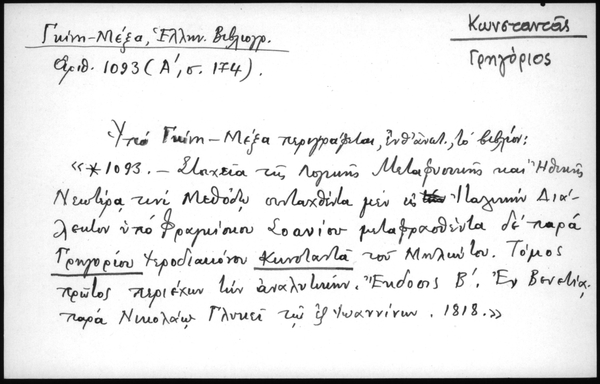 Κωνσταντᾶς
Γρηγόριος
Γκίνη-Μέξα, Ἑλλην. Βιβλιογρ.
ἀριθ. 1093 (Α', σ. 174).
Ὑπό Γκίνη-Μέξα περιγράφεται, ἐνθ' ἀνωτ., τό βιβλίον:
«*1093. – Στοιχεῖα τῆς Λογικῆς Μεταφυσικῆς καί Ἠθικῆς
Νεωτέρᾳ τινί Μεθόδῳ συνταχθέντα μέν εἰς Ἰταλικήν Διά-
λεκτον ὑπό Φραγκίσκου Σοαυΐου μεταφρασθέντα δέ παρά
Γρηγορίου Ἱεροδιακόνου Κωνσταντᾶ τοῦ Μηλιώτου. Τόμος
πρῶτος περιέχων τήν ἀναλυτικήν. Ἔκδοσις Β'. Ἐν Βενετίᾳ,
παρά Νικολάῳ Γλυκεῖ τῷ ἐξ Ἰωαννίνων. 1818.»